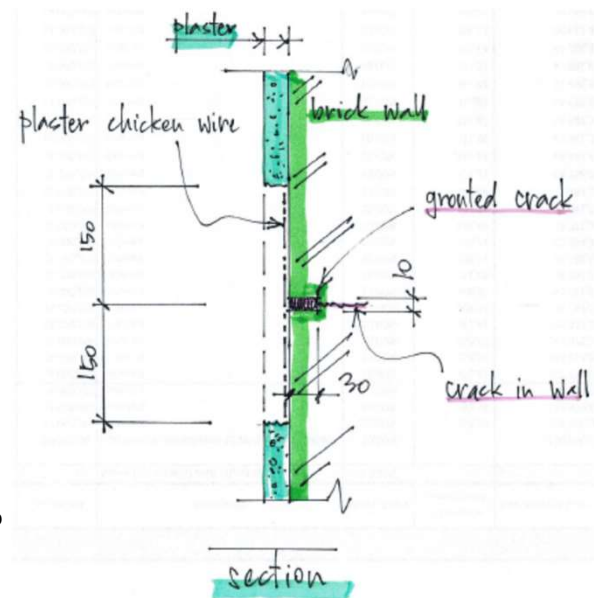 plaster
brick wall
plaster chicken wire
grouted crack
150
10
150
30
crack in wall
section